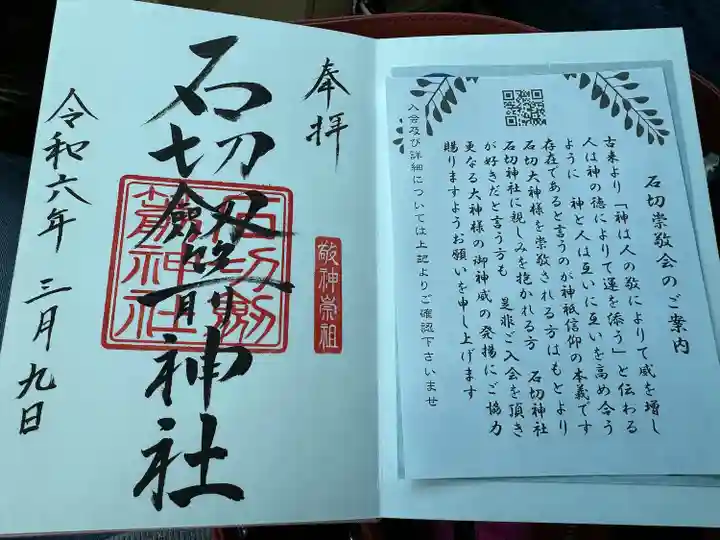 奉拝
石切劔箭神社
石切劔箭神社
敬神崇祖
令和六年 三月九日
石切崇敬会のご案内
古来より「神は人の敬によりて威を増し
人は神の徳によりて運を添う」と伝わる
ように 神と人は互いに互いを高め合う
存在であると言うのが神祇信仰の本義です
石切大神様を崇敬される方はもとより
石切神社に親しみを抱かれる方 石切神社
が好きだと言う方も 是非ご入会を頂き
更なる大神様の御神威の発揚にご協力
賜りますようお願いを申し上げます
入会及び詳細については上記よりご確認下さいませ